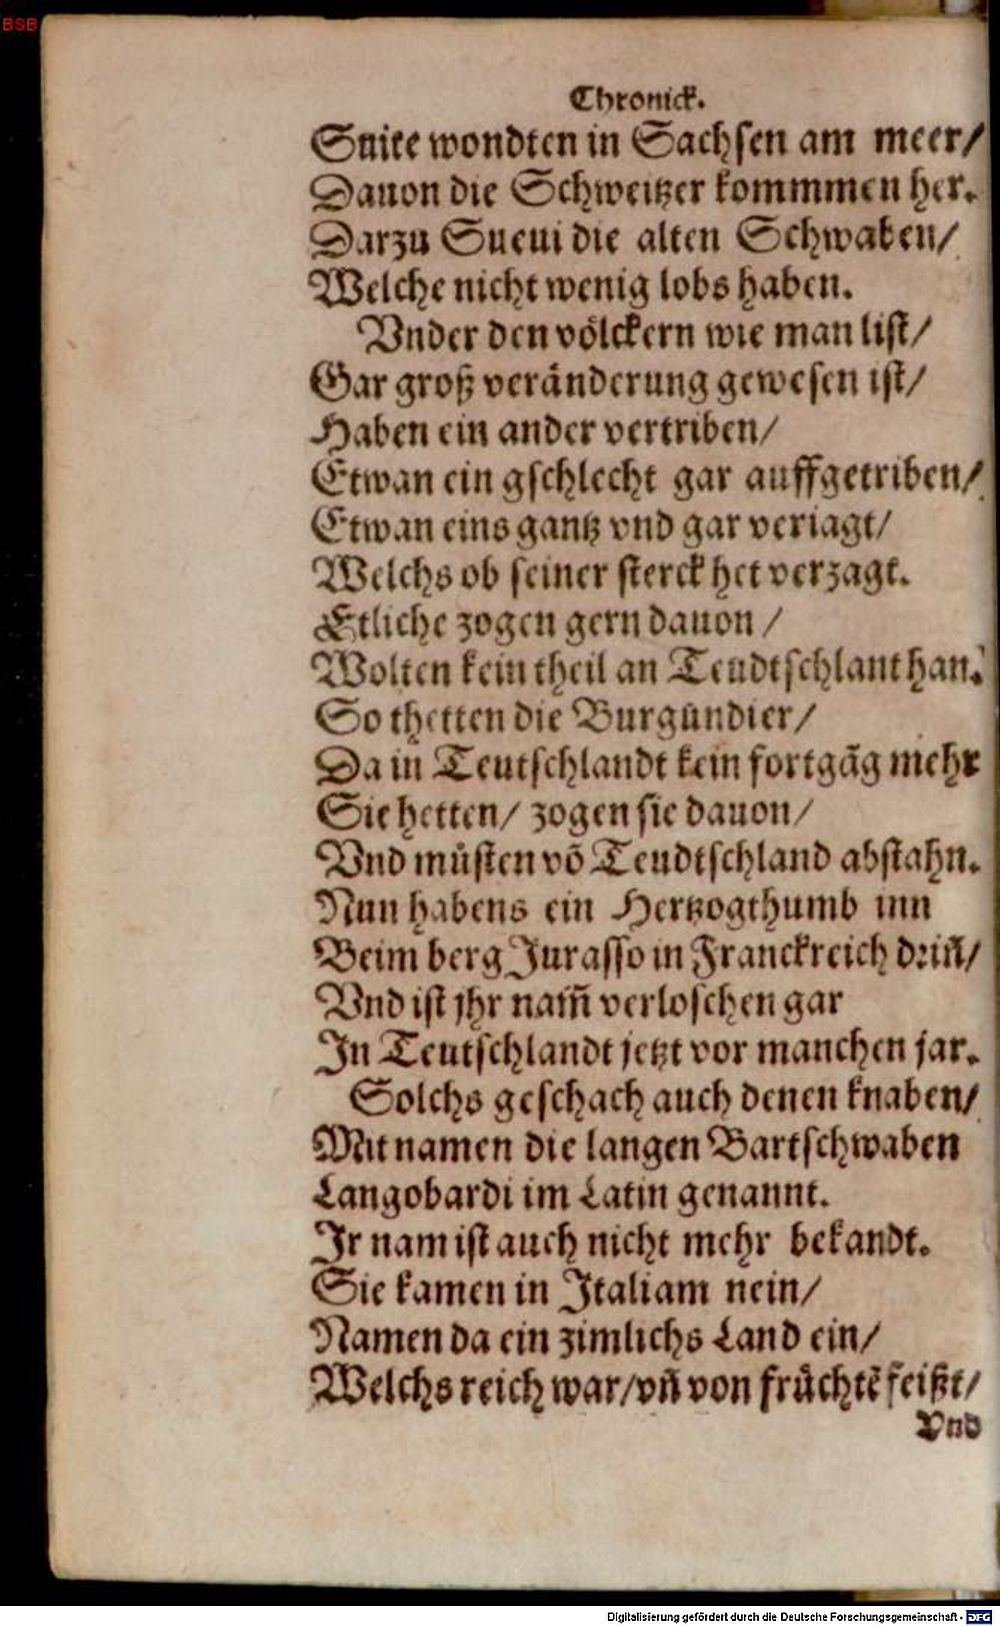 BSB
Chronick.
Suite wondten in Sachsen am meer/
Dauon die Schweitzer kommmen her.
Darzu Sueui die alten Schwaben/
Welche nicht wenig lobs haben.
Vnder den völckern wie man list/
Gar groß veränderung gewesen ist/
Haben ein ander vertriben/
Etwan ein gschlecht gar auffgetriben/
Etwan eins gantz vnd gar veriagt/
Welchs ob seiner sterck het verzagt.
Etliche zogen gern dauon /
Wolten kein theil an Teudtschlant han.
So thetten die Burgundier/
Da in Teutschlandt kein fortgãg mehr
Sie hetten/ zogen sie dauon/
Vnd můsten võ Teudtschland abstahn.
Nun habens ein Hertzogthumb inn
Beim berg Jurasso in Franckreich driñ/
Vnd ist jhr nam̃ verloschen gar
In Teutschlandt jetzt vor manchen jar.
Solchs geschach auch denen knaben/
Mit namen die langen Bartschwaben
Langobardi im Latin genannt.
Ir nam ist auch nicht mehr bekandt.
Sie kamen in Italiam nein/
Namen da ein zimlichs Land ein/
Welchs reich war/vñ von frůchtẽ feißt/
Vnd
Digitalisierung gefördert durch die Deutsche Forschungsgemeinschaft - DFG